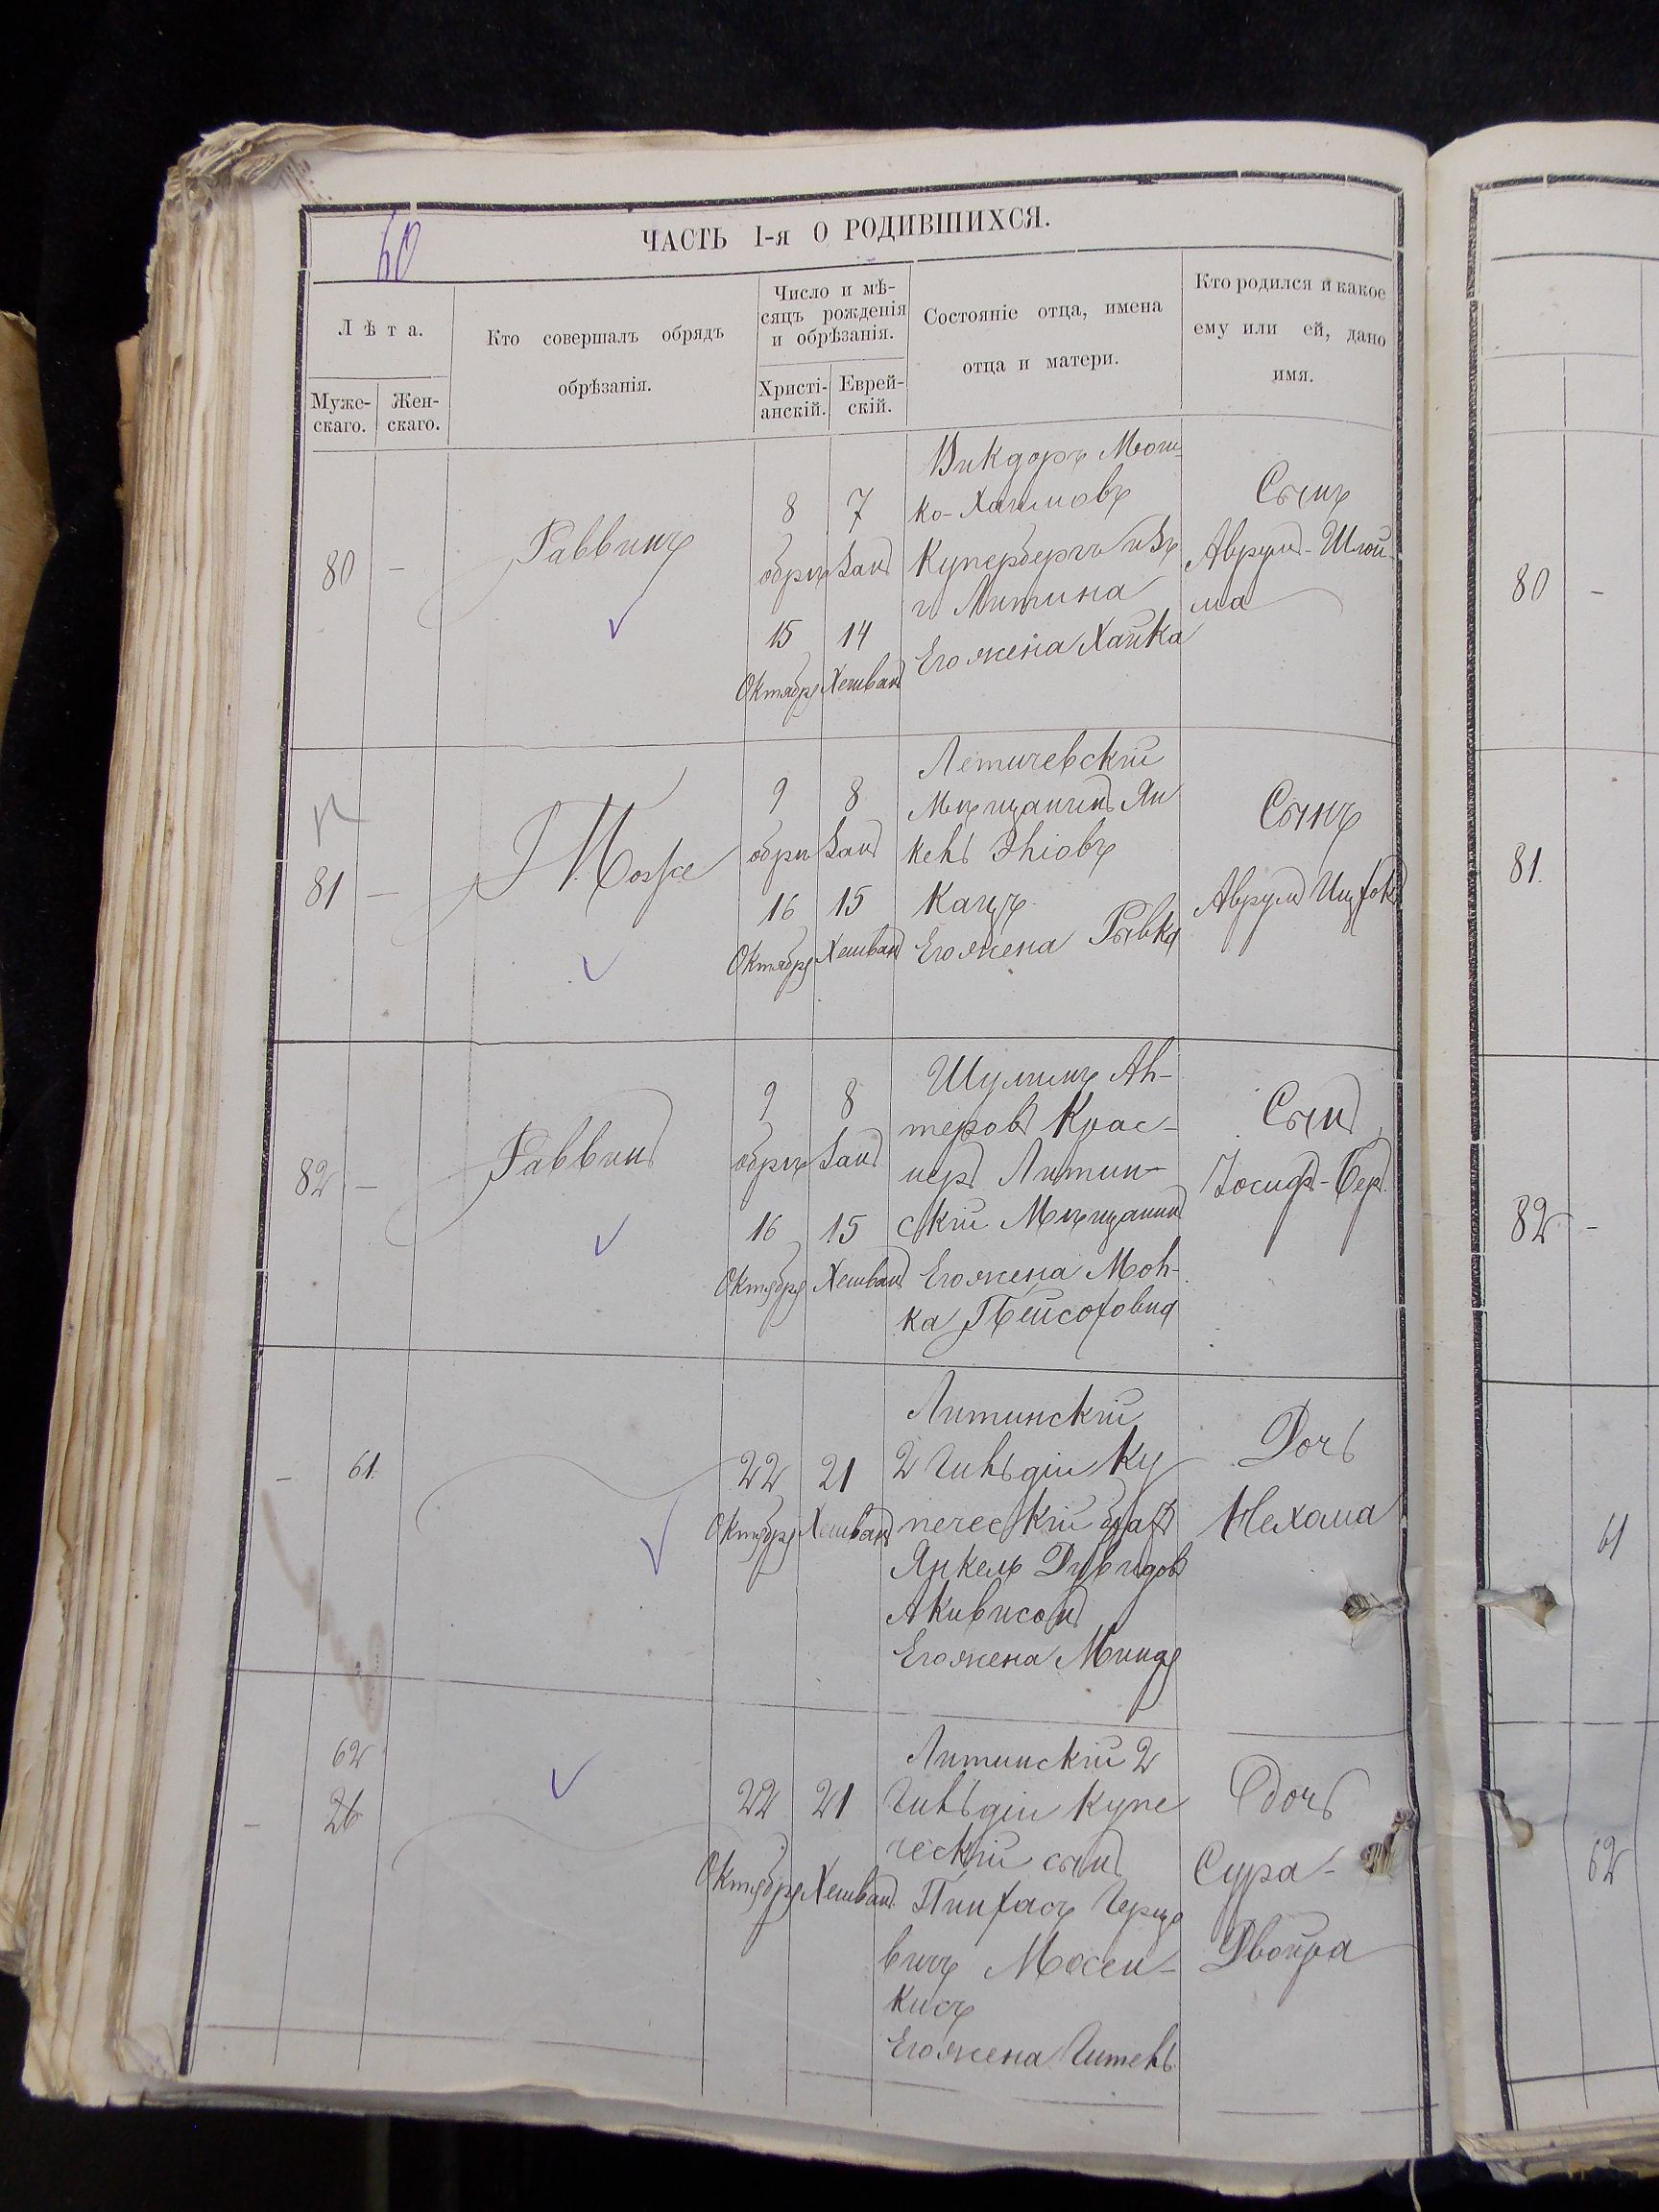 60
ЧАСТЬ I-я О РОДИВШИХСЯ.
Лѣта.
Муже-
скаго.
Жен-
скаго.
Кто совершалъ обрядъ
обрѣзанія.
Число и мѣ-
сяцъ рожденія
и обрѣзанія.
Христі-
анскій.
Еврей-
скій.
Состояніе отца, имена
отца и матери.
Кто родился и какое
ему или ей, дано
имя.
80
-
Раввинъ
8 7
обрѣзанъ
15 14
Октября Хешванъ
Викдоръ Мош-
ко-Хаимовъ
Купербергъ изъ
г Литина
Его жена Хайка
Сынъ
Аврумъ-Шлой-
ма
80
-
81
-
Тоже
9 8
обрѣзанъ
16 15
Октября Хешванъ
Летичевскій
Мѣщанинъ Ян
кель
Кацъ
Его жена Рывка
Сынъ
Аврумъ Ицхокъ
81.
82
-
Раввинъ
9 8
обрѣзанъ
16 15
Октября Хешванъ
Шулимъ Аль-
теровъ Крас-
неръ Литин-
скій Мѣщанинъ
Его жена Моль-
ка Пейсоховна
Сынъ
Іосифъ-Беръ
82
-
-
61.
22 21
Октября Хешванъ
Литинскій
2 Гильдіи Ку
печескій братъ
Янкель Дувидовъ
Акивисонъ
Его жена Миндя
Дочь
Нехама
61
62
26
-
22 21
Октября Хешванъ
Литинскій 2
Гильдіи купе
ческій сынъ
Пинхасъ Герцо
вичъ Мосен-
кисъ
Его жена Гитель
дочь
Сура-
Двойра
62